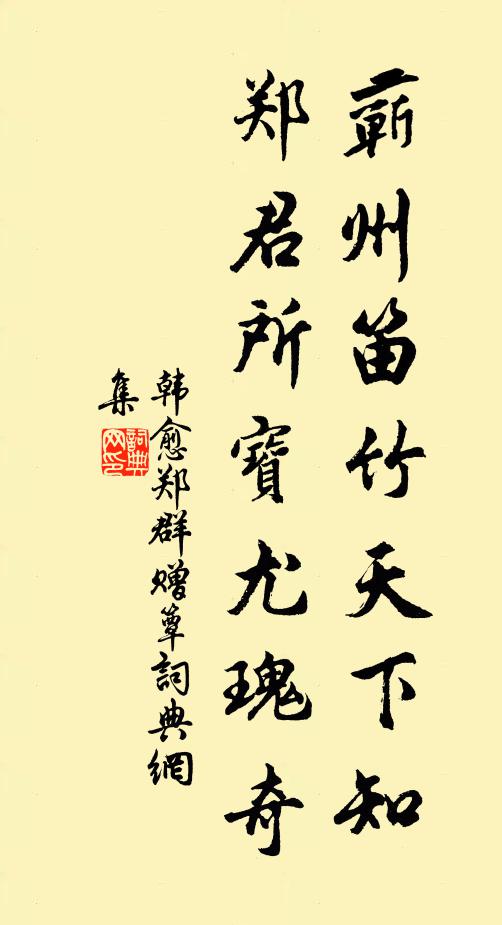 蕲州笛竹天下知
郑君所寶尤瑰奇
韩愈郑群赠簟詞典網
集
詞典
网印